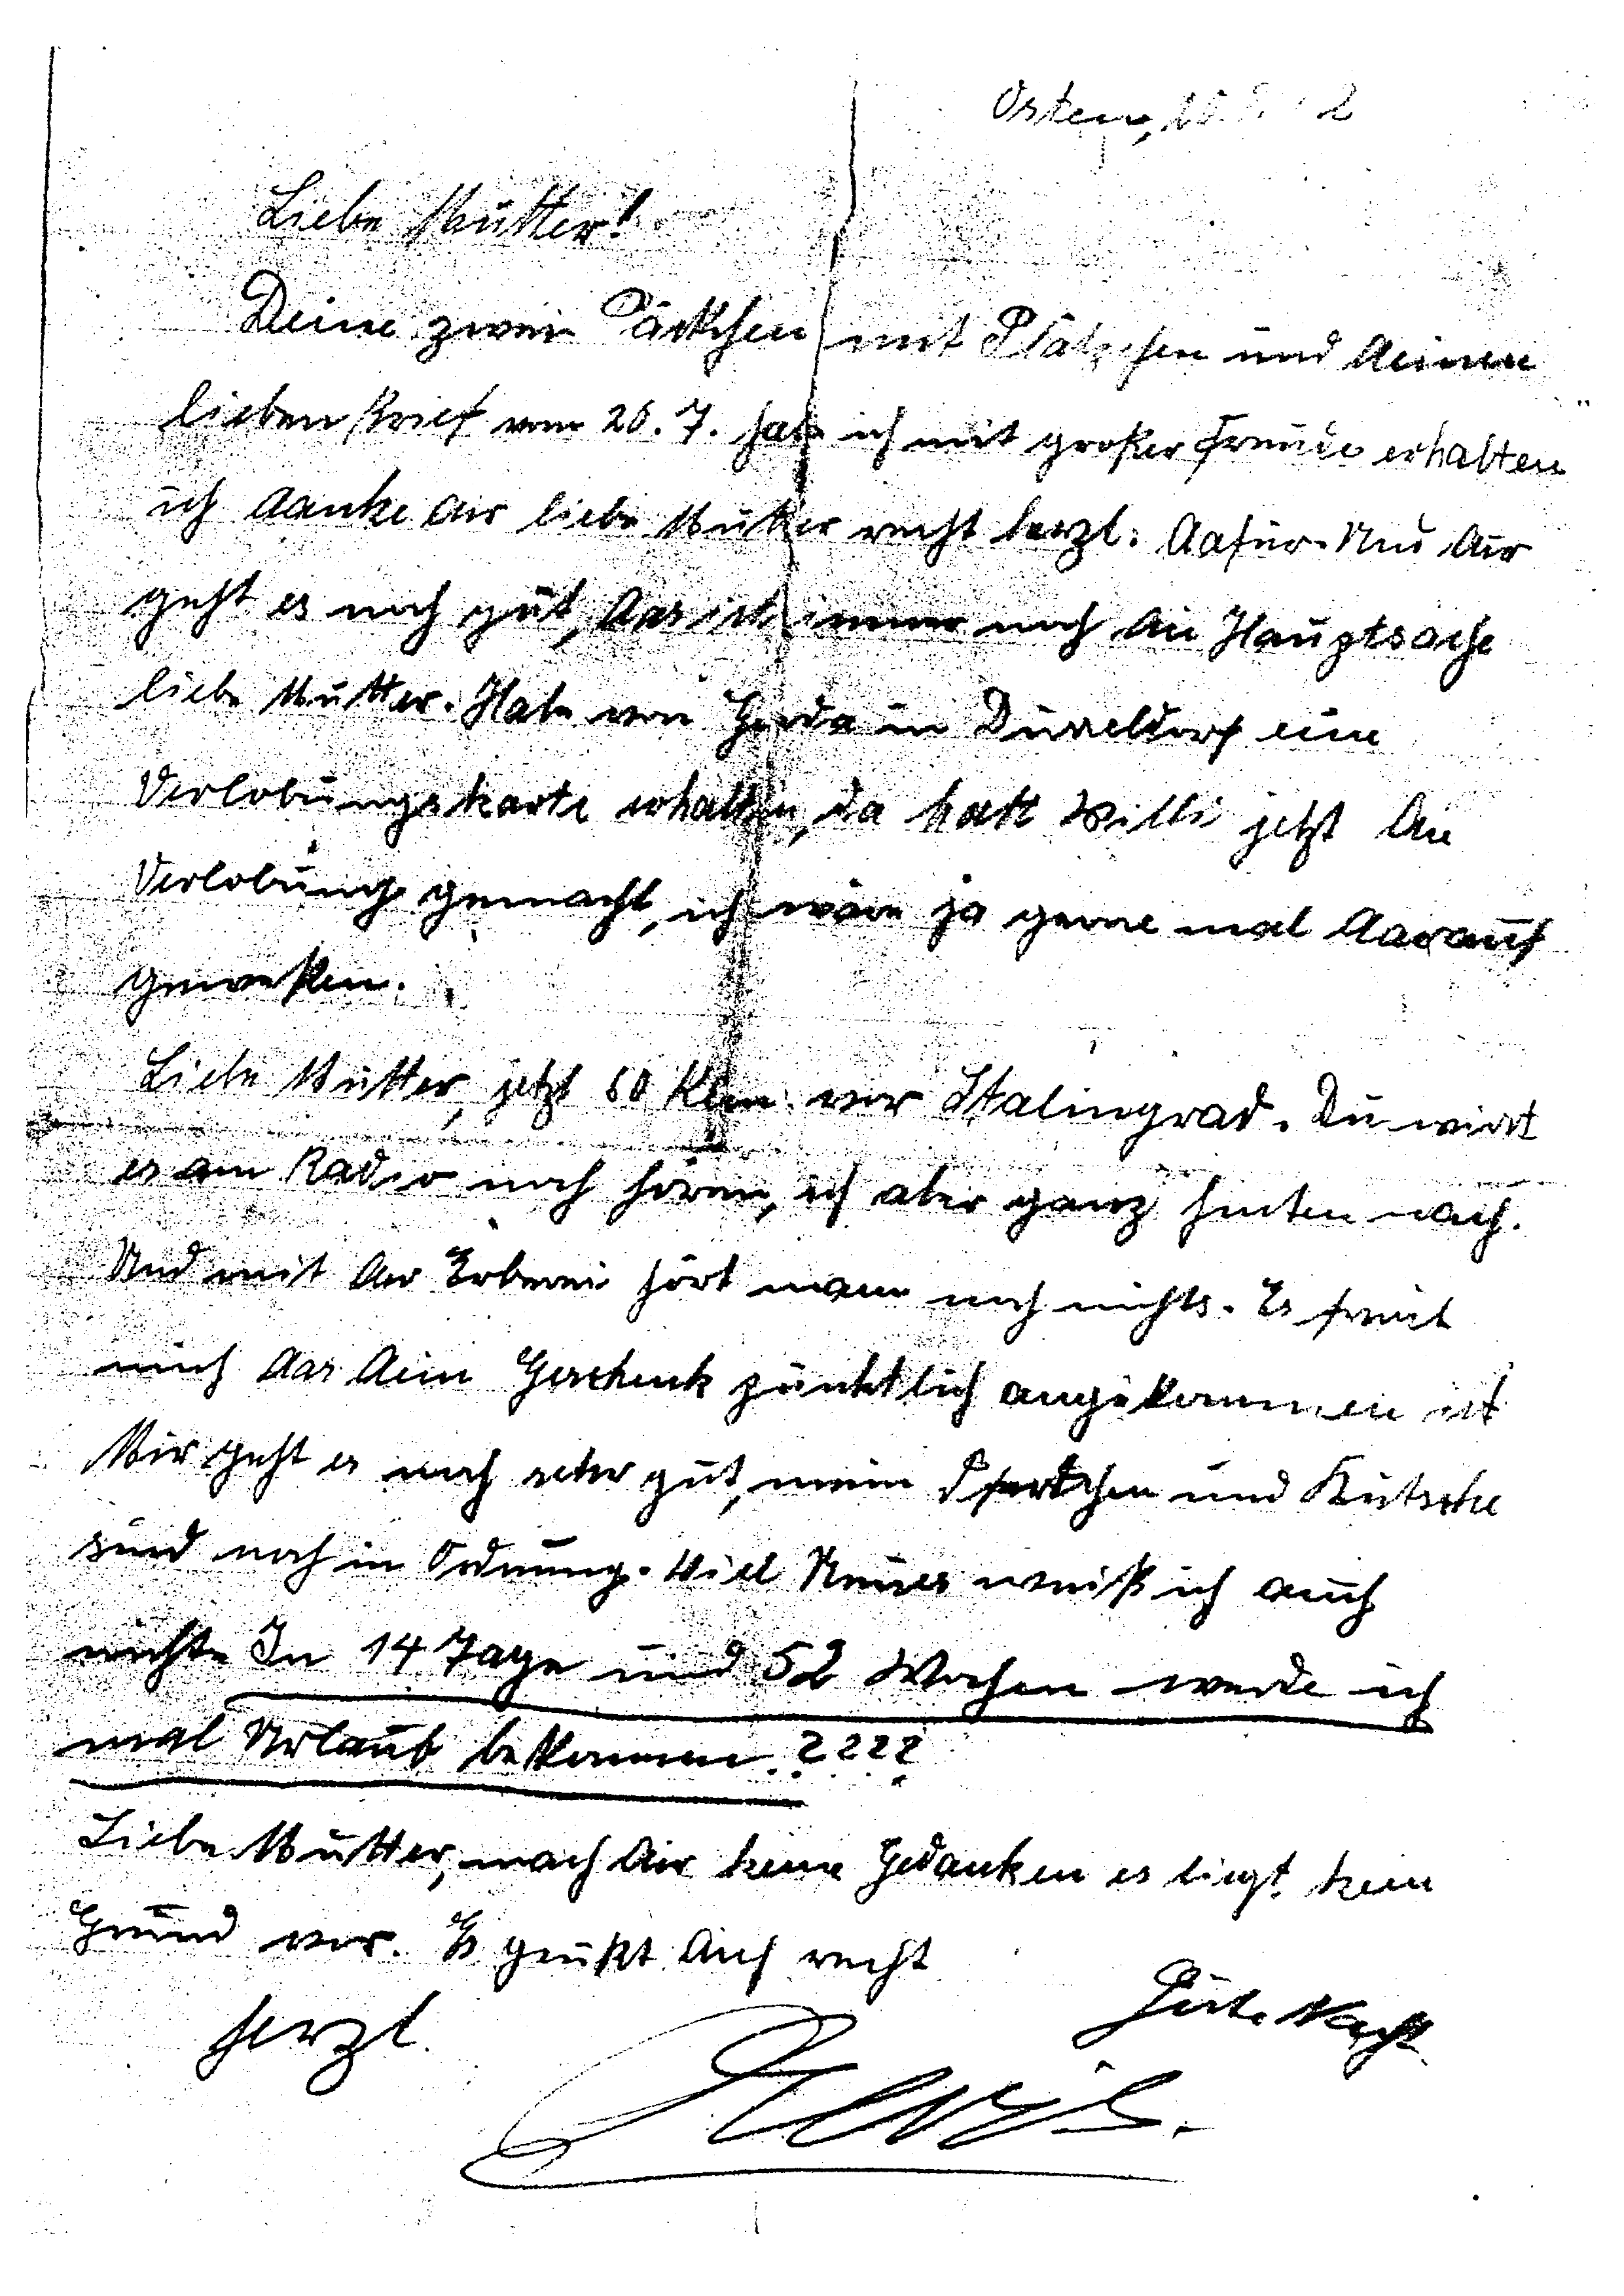 Osten,
Liebe Mutter!
Deine zwei Päckchen mit Plätzchen und deinen
lieben Brief vom 20. 7. habe ich mit großer Freude erhalten
ich danke dir liebe Mutter recht herzl. dafür. Nu dir
geht es noch gut, das ist immer noch die Hauptsache
liebe Mutter. Habe von Gerda in Düsseldorf eine
Verlobungskarte erhalten, da hatt Willi jetzt die
Verlobung gemacht, ich wäre ja gerne mal darauf
gewessen.
Liebe Mutter, jetzt 60 Klm. vor Stalingrad. Du wirst
es am Radio noch hören, ich aber ganz hinten nach.
Und mit der Erberei hört mann noch nichts. Es freut
mich das dein Geschenk pünktlich angekommen ist
Mir geht es noch sehr gut, mein Pferdchen und Kutsche
sind noch in Ordnung. Viel Neues weiß ich auch
nicht. In 14 Tage und 52 Wochen werde ich
mal Urlaub bekommen. ????
Liebe Mutter, mach dir keine Gedanken es liegt kein
Grund vor. Es grüßt dich recht
herzl. Gute Nacht.